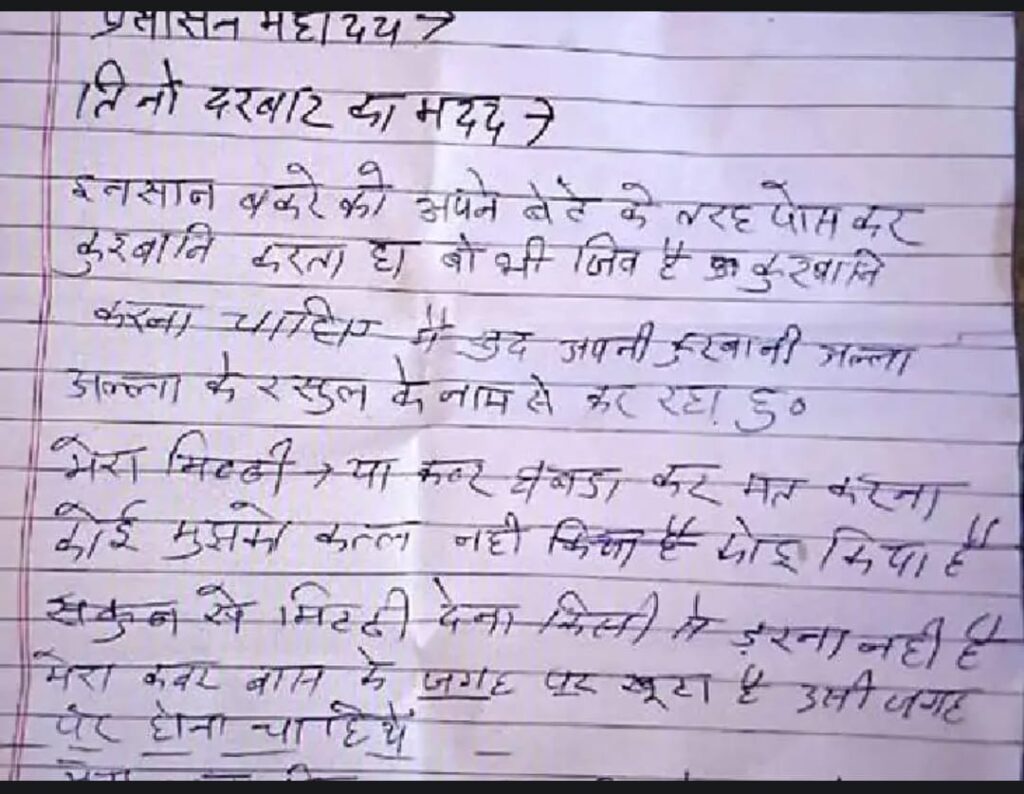 प्रसासन महादय →
तिनो दरबार का मदद →
इनसान बकरे को अपने बेटे के तरह पोस कर
कुरबानि करता हा वो भी जिव है कुरबानि
करना चाहिए मै खुद अपनी कुरबानी अल्ला
अल्ला के रसुल के नाम से कर रहा हु०
मेरा मिटटी → या कबर घबडा कर मत करना
कोई मुझको कत्ल नही किया है कोइ किया है
सकुन से मिटटी देना किसी से डरना नही है
मेरा कबर बास के जगह पर खूटा है उसी जगह
पर होना चाहिये